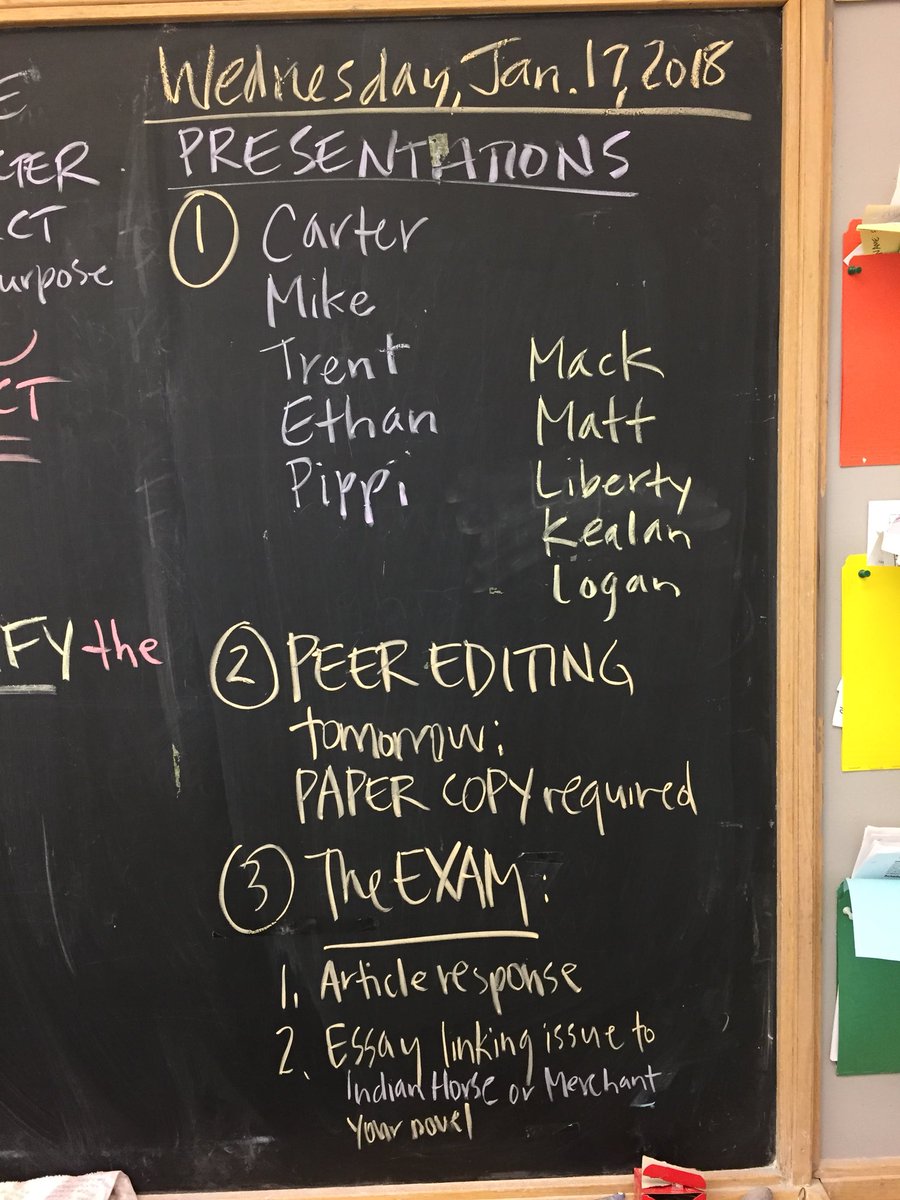 Wednesday, Jan. 17, 2018
PRESENTATIONS
1 Carter
Mike
Trent
Ethan
Pippi
Mack
Matt
Liberty
Kealan
Logan
2 PEER EDITING
tomorrow:
PAPER COPY required
3 The EXAM:
1. Article response
2. Essay linking issue to
Indian Horse or Merchant
your novel
E
TER
CT
urpose
CT
FY the